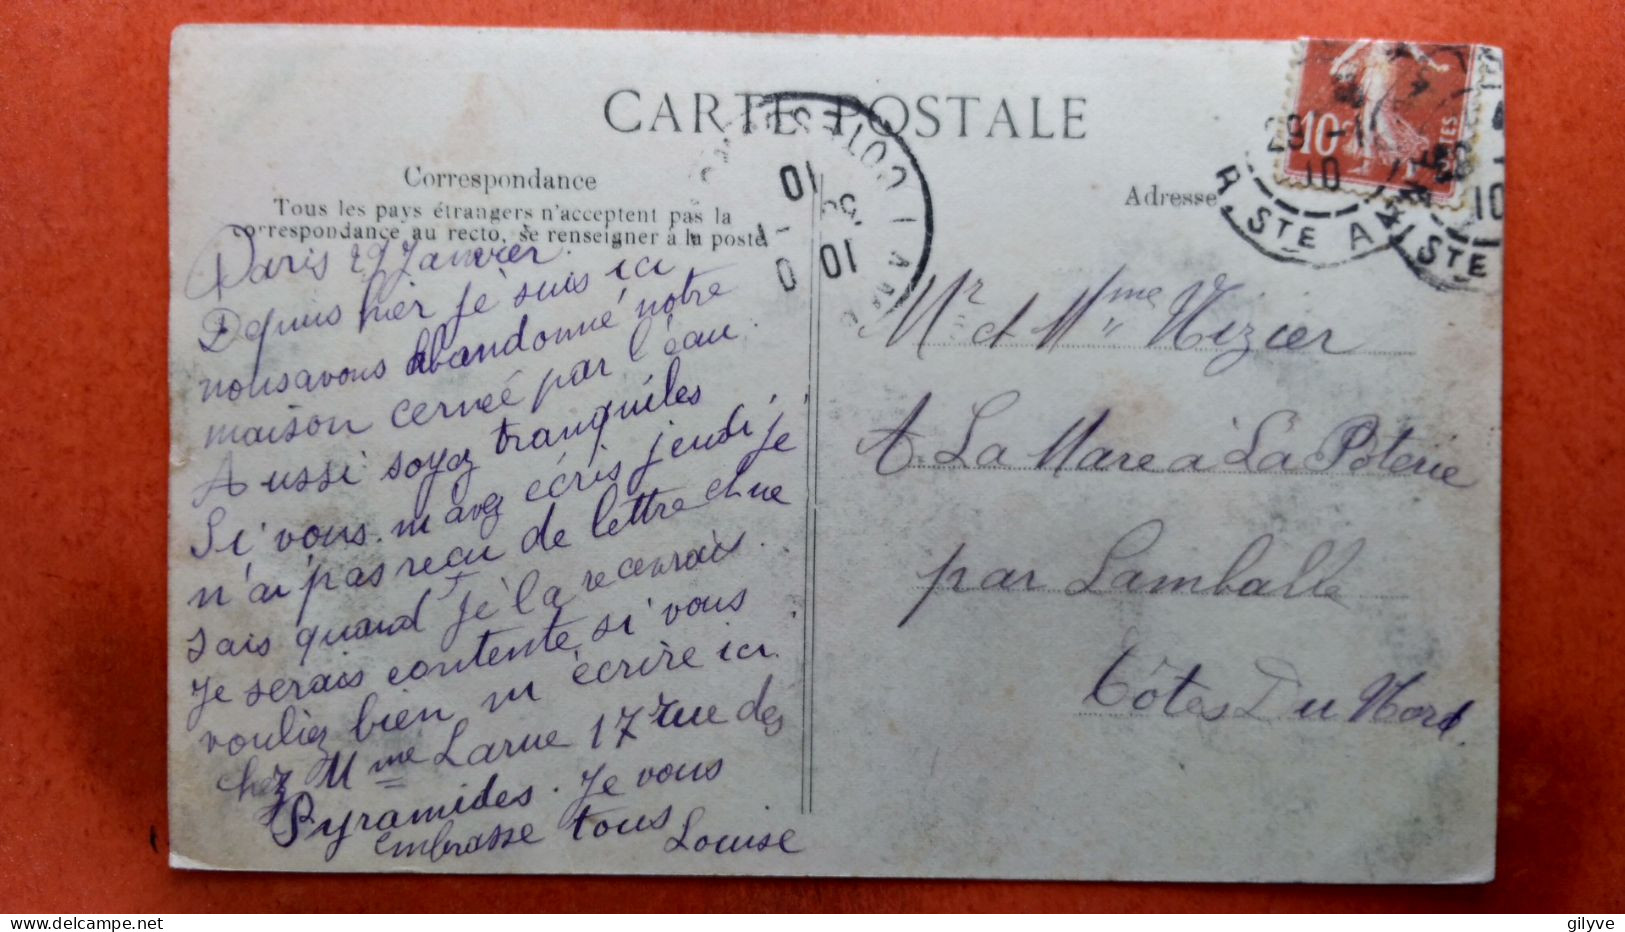 CARTE POSTALE
Correspondance
Tous les pays étrangers n'acceptent pas la
correspondance au recto, se renseigner à la poste
Paris 29 Janvier
Depuis hier je suis ici
nousavons abandonné notre
maison cernée par l'éau.
Aussi soyez tranquiles
Si vous m'avez écris jeudi je
n'ai pas reçu de lettre et ne
sais quand je la recevrais.
Je serais contente si vous
vouliez bien m'écrire ici.
chez Mme Larue 17 rue des
Pyramides. Je vous
embrasse tous
Louise
Adresse
10c
29 -1
10
R. STE A
COTES
10
10
Mr et Mme Nizier
A La Mare à La Poterie
par Lamballe
Côtes Du Nord.
gilyve